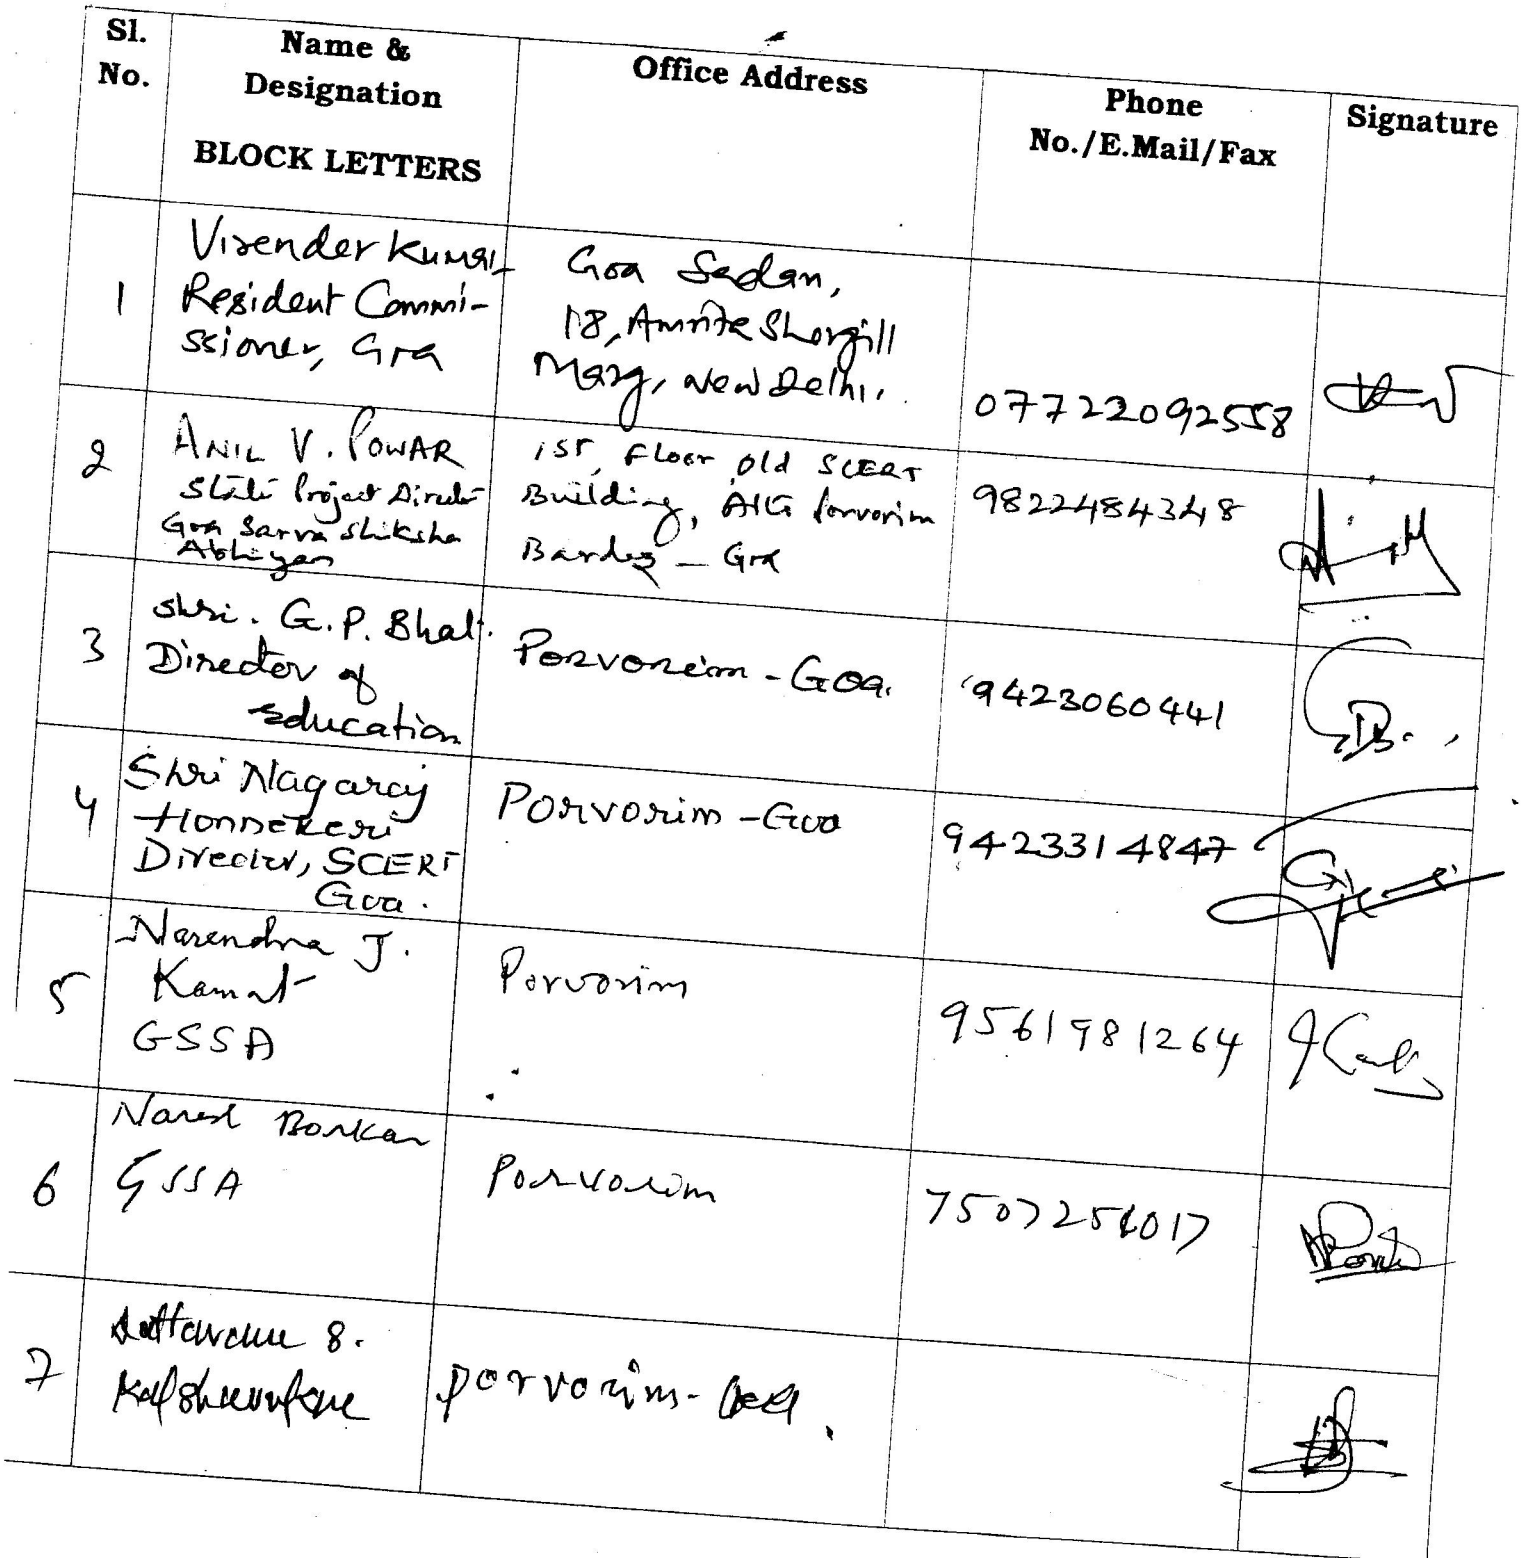 Sl. No.
Name & Designation BLOCK LETTERS
Office Address
Phone No./E.Mail/Fax
Signature
1
Virender Kumar
Resident Commi-
ssioner, Goa
Goa Sadan,
18, Amrita Shergill
Marg, New Delhi.
07722092558
2
ANIL V. POWAR
State Project Director
Goa Sarva Shiksha
Abhiyan
1st, Floor old SCERT
Building, Porvorim
Bardez - Goa
9822484348
3
Shri. G.P. Bhat.
Director of
Education
Porvorim - Goa.
9423060441
4
Shri Nagaraj
Honnekeri
Director, SCERT
Goa.
Porvorim - Goa
9423314847
5
Narendra J.
Kamat
GSSA
Porvorim
9561981264
6
Naresh Borkar
GSSA
Porvorim
7
Porvorim - Goa.